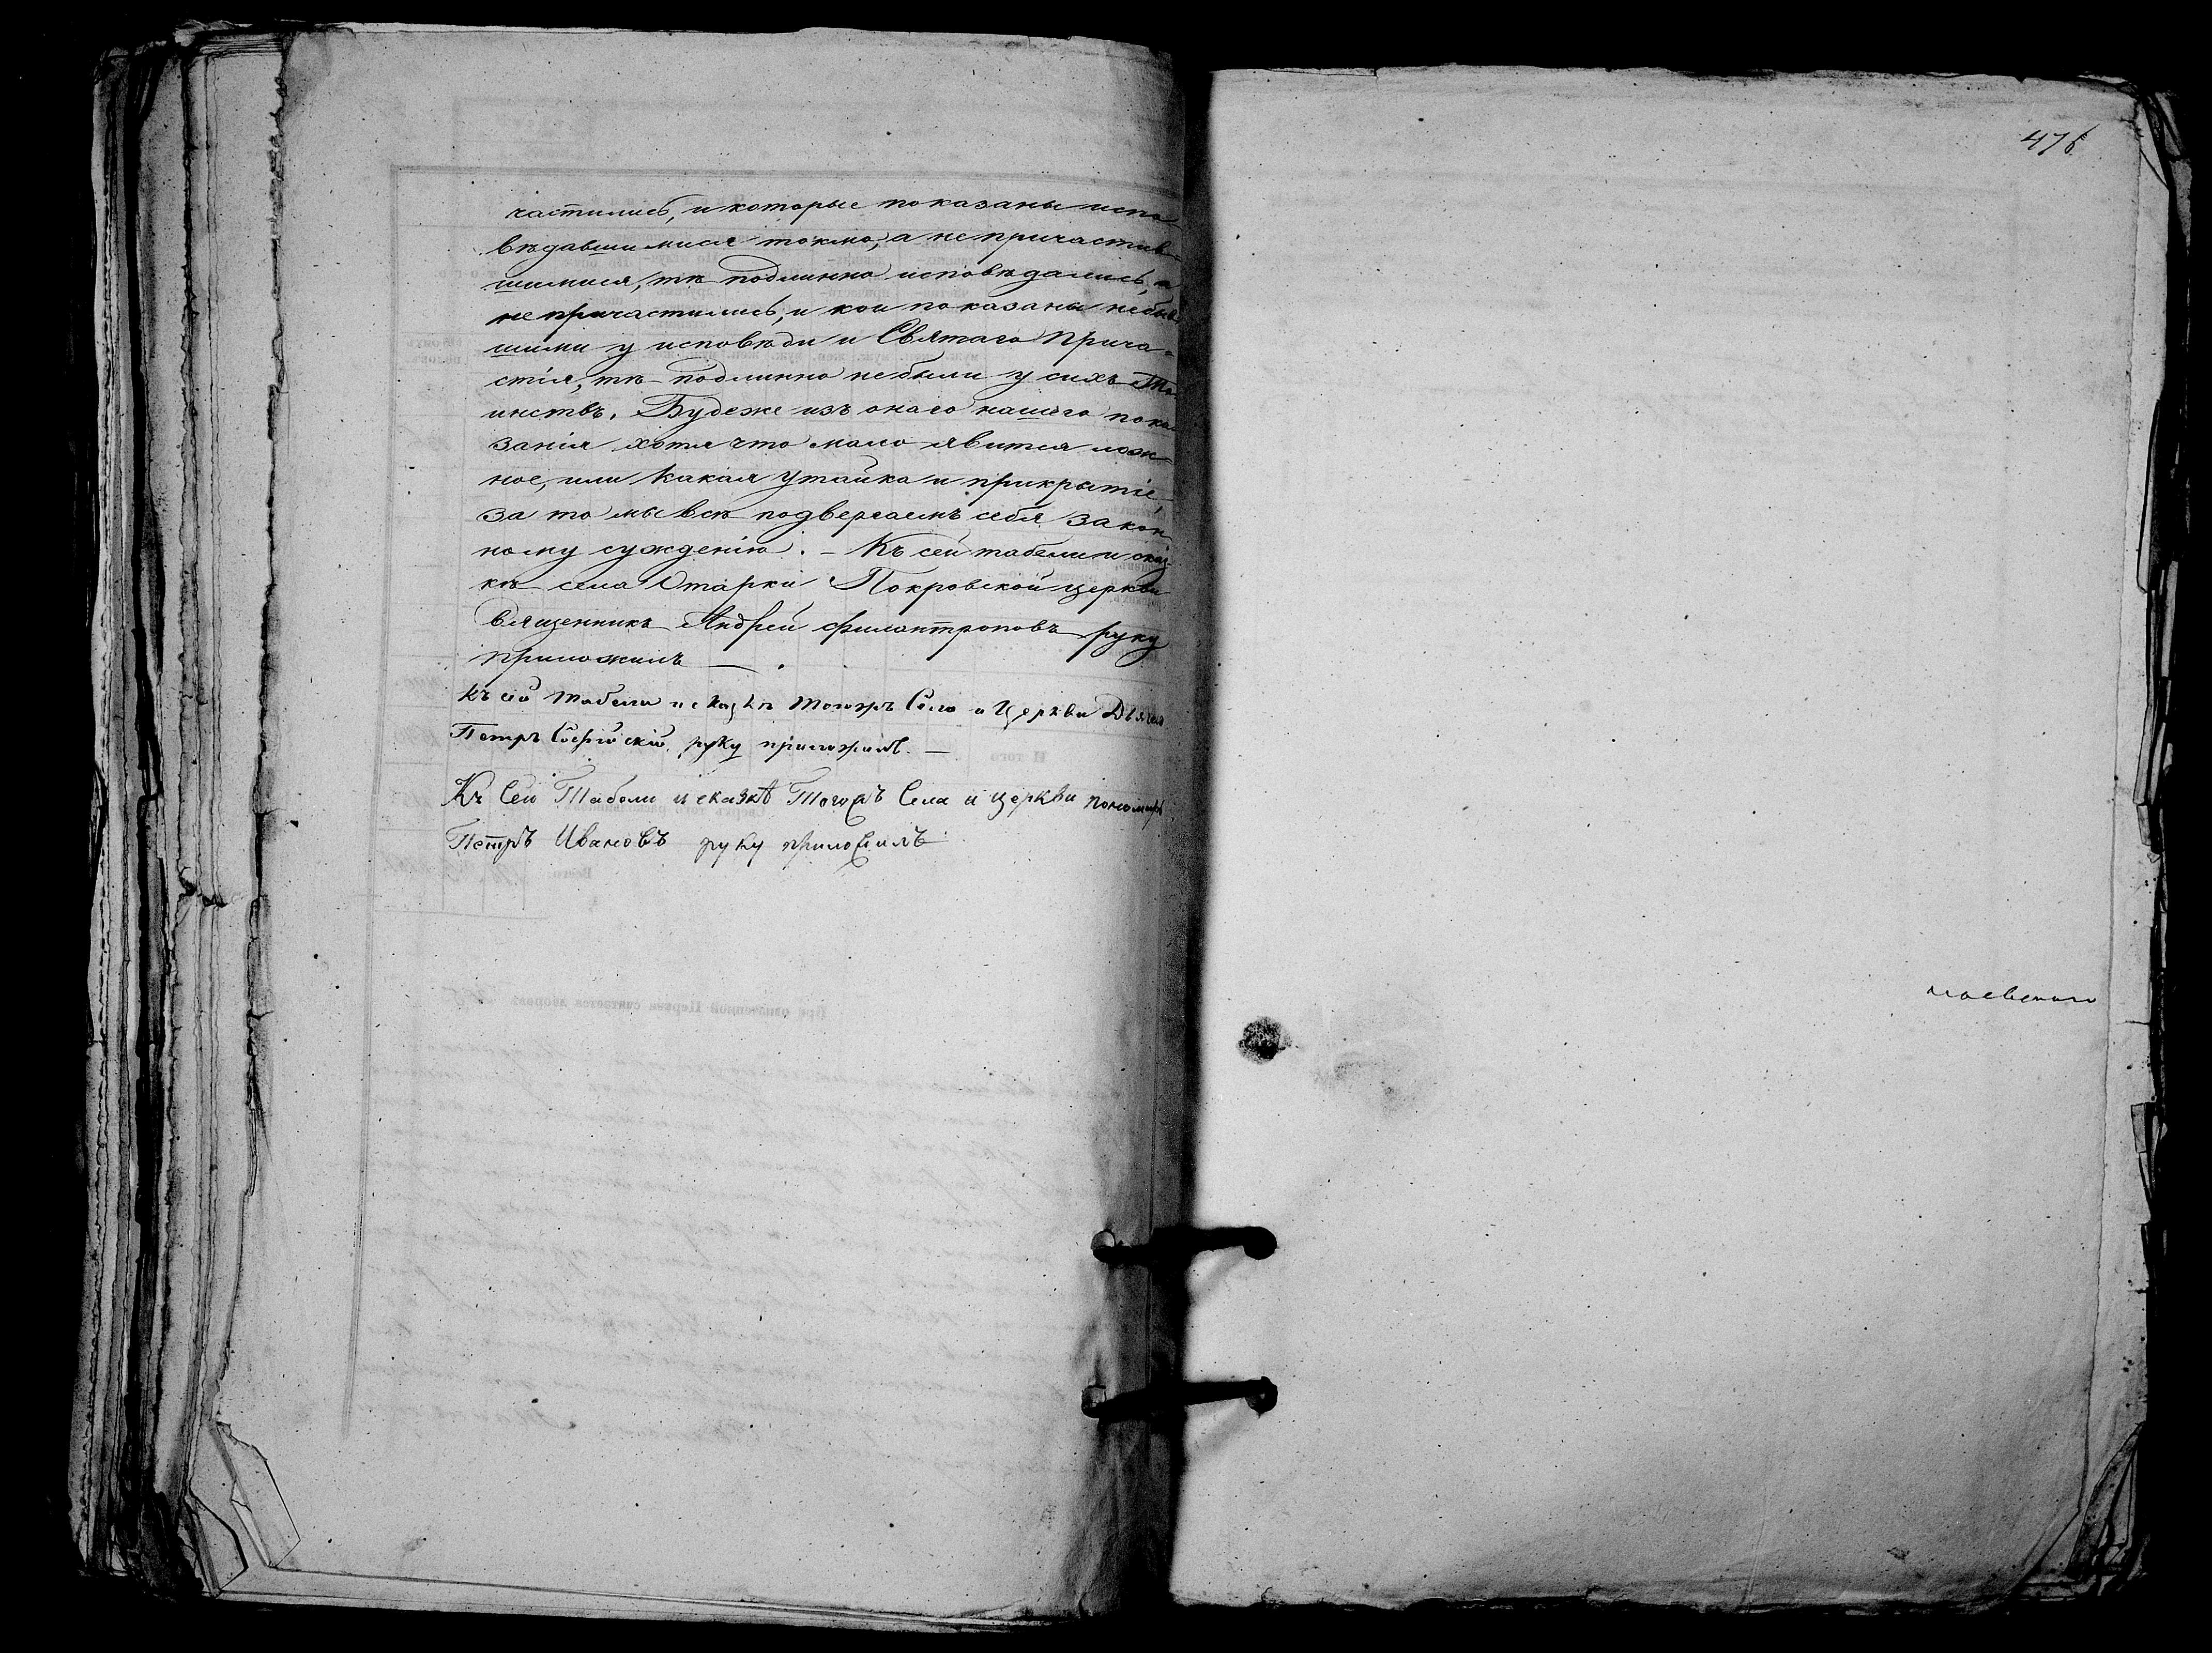 частились, и которые показаны испо
вѣдавшимися токмо, а непричастив-
шимися, тѣ подлинно исповѣдались, а
не причастились, и кои показаны небыв-
шими у исповѣди и Святаго Прича-
стія, тѣ подлинно небыли у сихъ Та-
инствъ. Будеже изъ онаго нашего пока-
занія хотя что мало явится лож-
ное, или какая утайка и прикрытіе,
за то мы всѣ подвергаемъ себя закон
ному сужденію. – Къ сей табели и сказ-
кѣ села Старки Покровской церкви
священникъ Андрей Филантроповъ руку
приложилъ — .
Къ сей табели и сказкѣ тогожъ Села и Церкви Дьячекъ
Петръ руку приложилъ. —
Къ Сей Табели и сказкѣ Тогожъ Села и Церкви пономарь
Петръ Ивановъ руку приложилъ
476